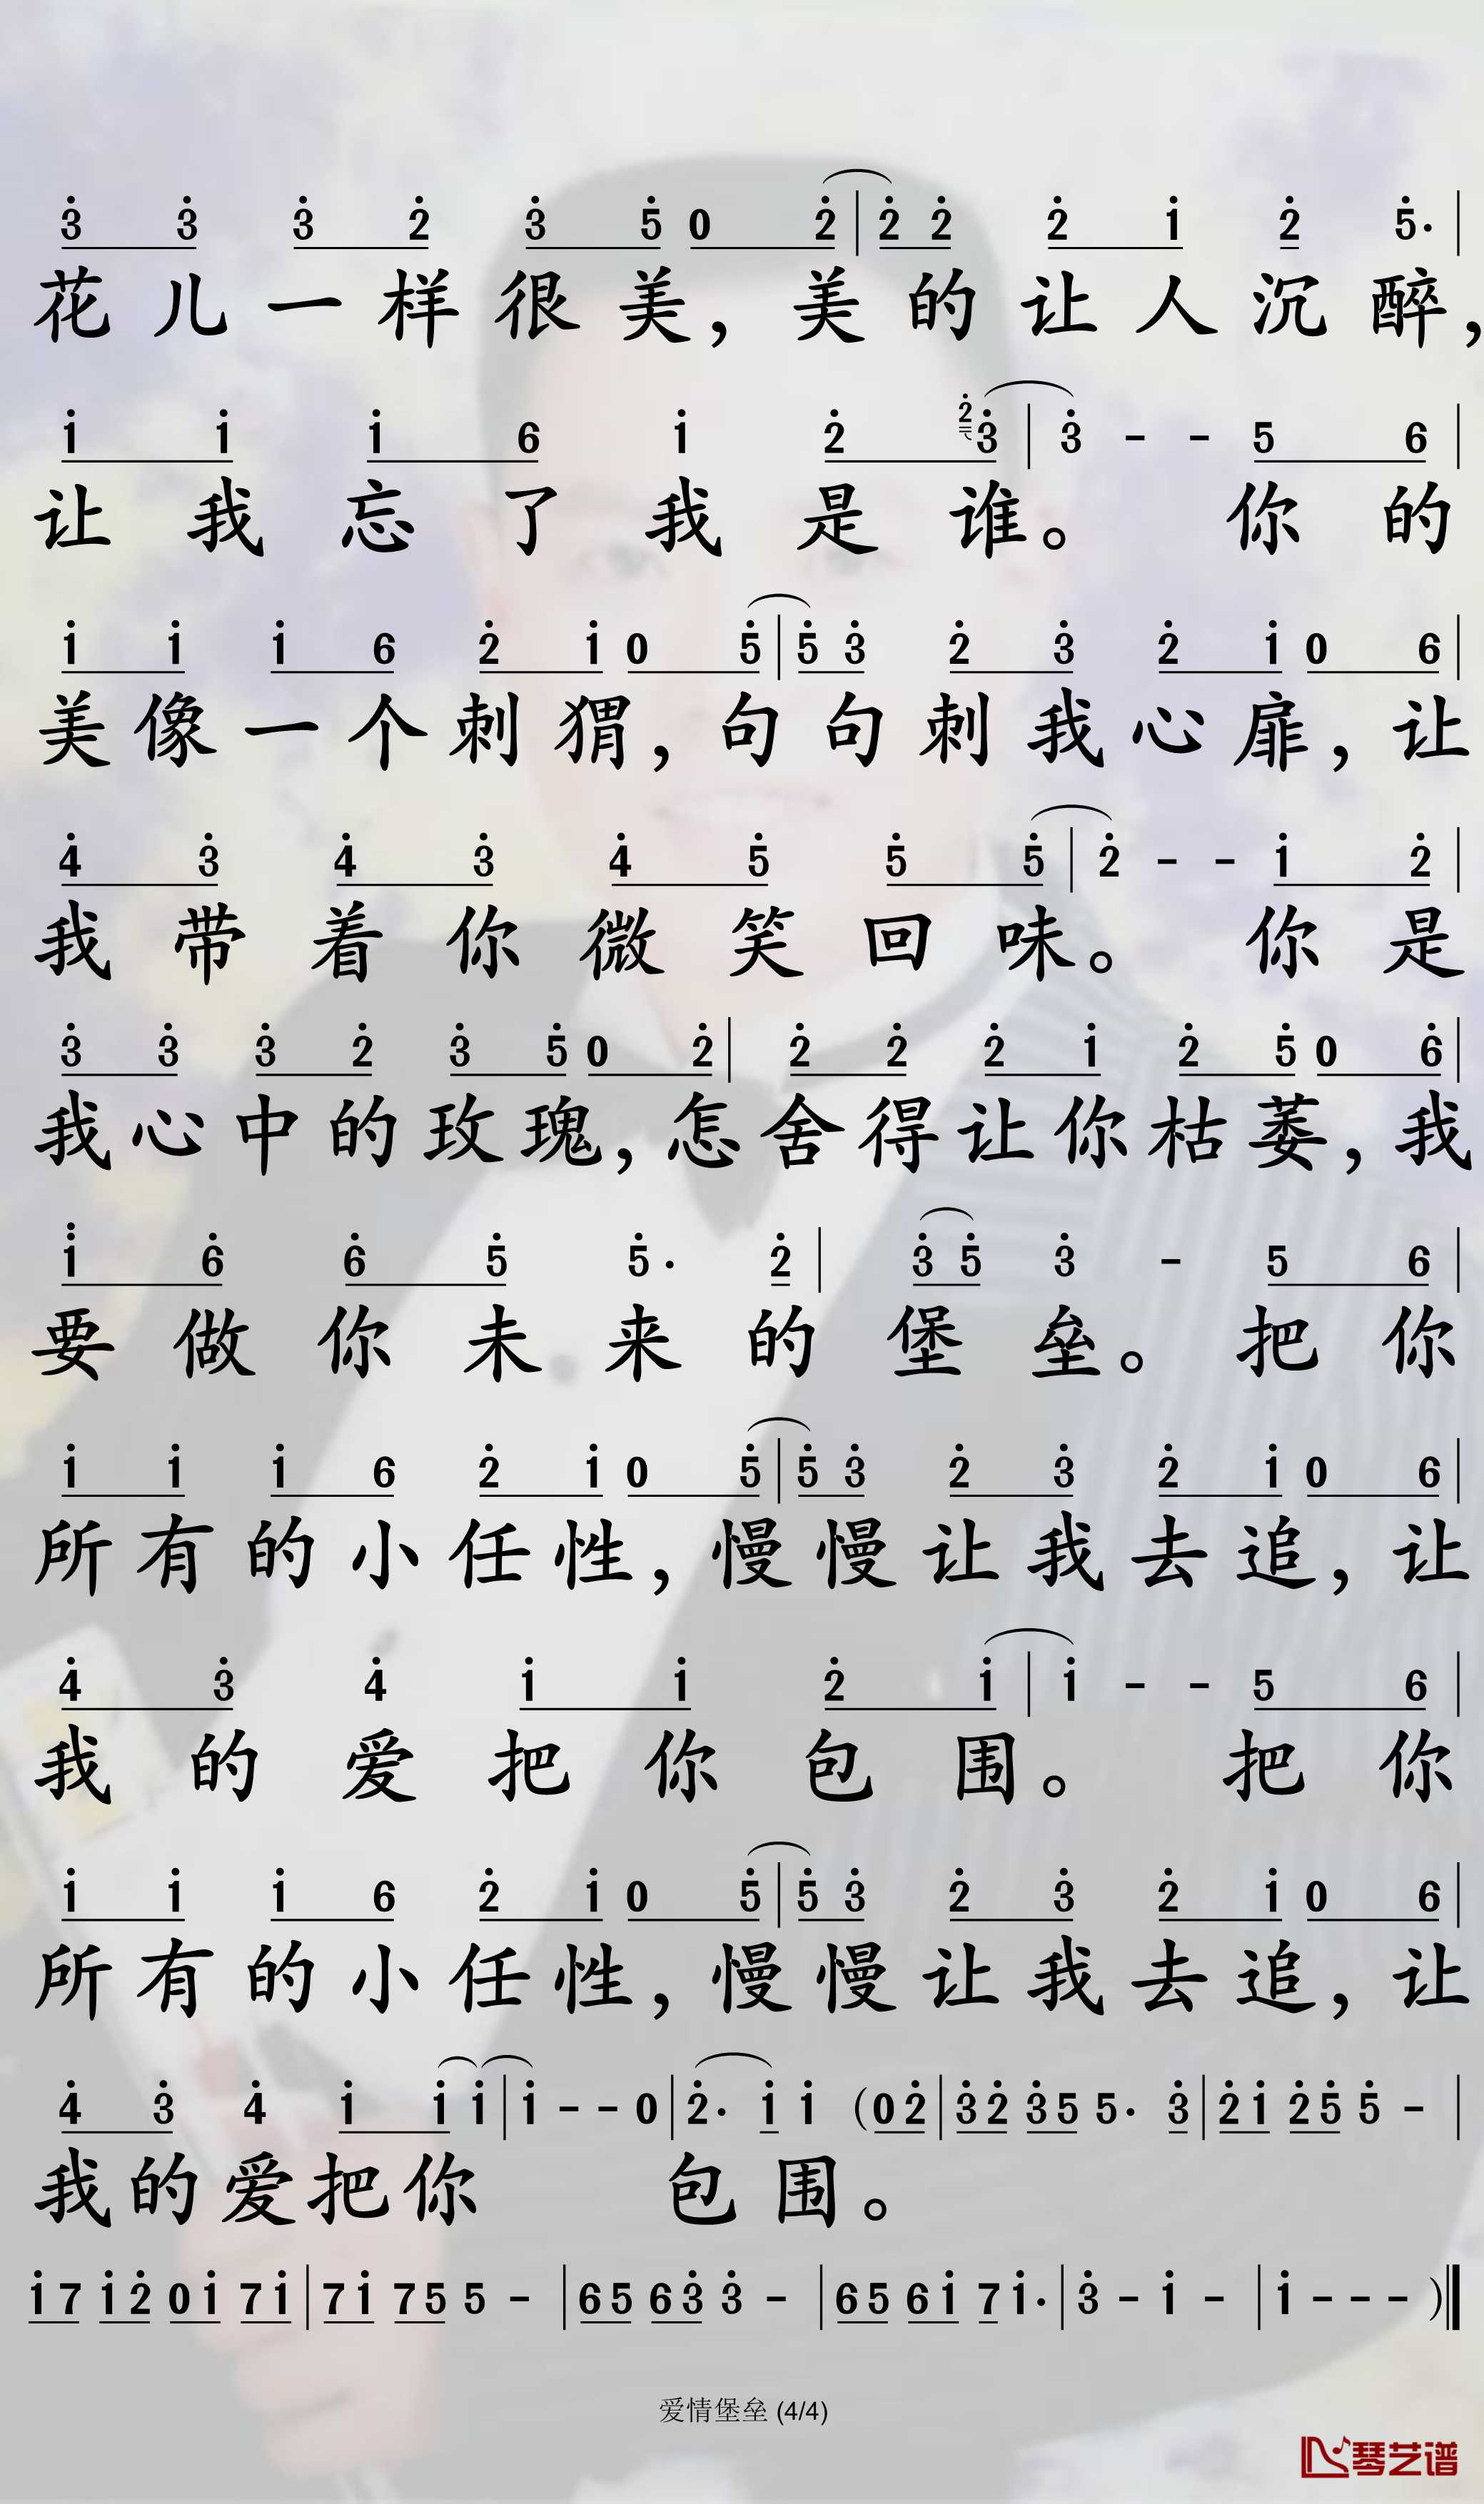 3 3 3 2 3 5 0 2 | 2 2 2 1 2 5· |
花儿一样很美，美的让人沉醉，
1 1 1 6 1 2 2 3 | 3 - - 5 6 |
让我忘了我是谁。你的
1 1 1 6 2 1 0 5 | 5 3 2 3 2 1 0 6 |
美像一个刺猬，句句刺我心扉，让
4 3 4 3 4 5 5 5 | 2 - - 1 2 |
我带着你微笑回味。你是
3 3 3 2 3 5 0 2 | 2 2 2 1 2 5 0 6 |
我心中的玫瑰，怎舍得让你枯萎，我
1 6 6 5 5· 2 | 3 5 3 - 5 6 |
要做你未来的堡垒。把你
1 1 1 6 2 1 0 5 | 5 3 2 3 2 1 0 6 |
所有的小任性，慢慢让我去追，让
4 3 4 1 1 2 1 | 1 - - 5 6 |
我的爱把你包围。把你
1 1 1 6 2 1 0 5 | 5 3 2 3 2 1 0 6 |
所有的小任性，慢慢让我去追，让
4 3 4 1 1 1 | 1 - - 0 | 2· 1 1 (0 2 | 3 2 3 5 5· 3 | 2 1 2 5 5 - |
我的爱把你包围。
1 7 1 2 0 1 7 1 | 7 1 7 5 5 - | 6 5 6 3 3 - | 6 5 6 1 7 1· | 3 - 1 - | 1 - - - )
爱情堡垒 (4/4)
琴艺谱